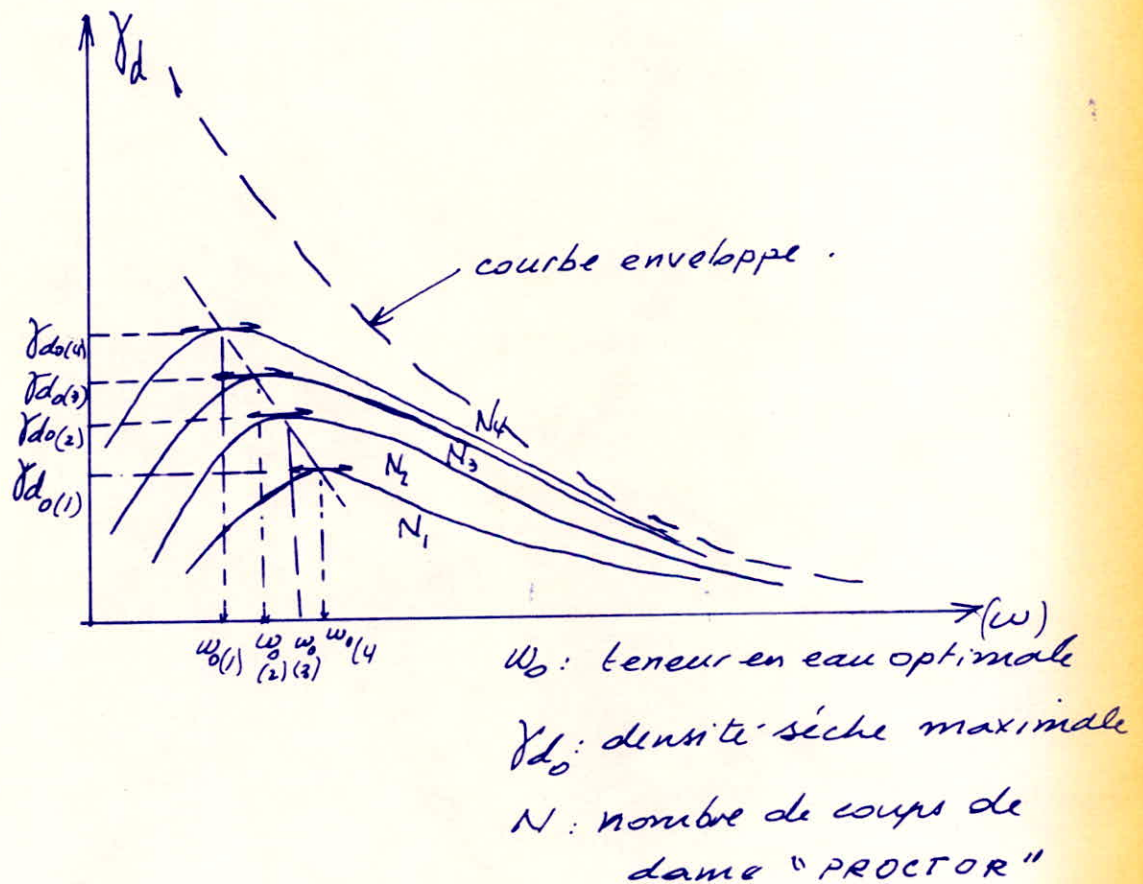 γd
courbe enveloppe.
γdo(4)
γdo(3)
γdo(2)
γdo(1)
N4
N3
N2
N1
(ω)
ω0(1) ω0(2) ω0(3) ω0(4
ω0 : teneur en eau optimale
γdo : densité sèche maximale
N : nombre de coups de
dame "PROCTOR"